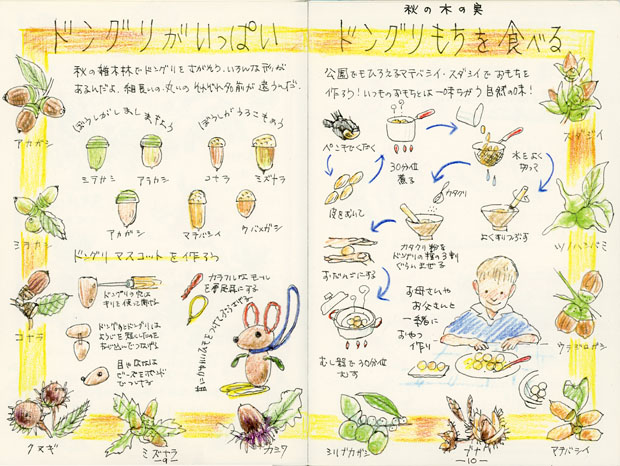 ドングリがいっぱい
秋の雑木林でドングリをさがそう。いろんな形が
あるんだよ。細長いの、丸いの それぞれ名前が違うんだ。
ぼうしがしましまもよう
ぼうしがうろこもよう
シラカシ
アラカシ
コナラ
ミズナラ
アカガシ
マテバシイ
ウバメガシ
アカガシ
シラカシ
コナラ
クヌギ
ミズナラ
カシワ
ドングリマスコットを作ろう
ドングリの穴は
キリを使って開ける
カラフルなモールを
―9―
秋の木の実
ドングリもちを食べる
公園でもひろえるマテバシイ・スダジイでおもちを
作ろう！いつものおもちとは一味ちがう自然の味！
30分位
煮る
水をよく
切って
皮をむいて
カタクリ
よくすりつぶす
カタクリ粉を
ドングリの粉の3割
ぐらいまぜる
おだんごにする
むし器で30分位
むす
お母さんや
お父さんと
一緒に
おやつ
作り
スダジイ
ツノハシバミ
ウラジロガシ
マテバシイ
シリブカガシ
ブナ
―10―